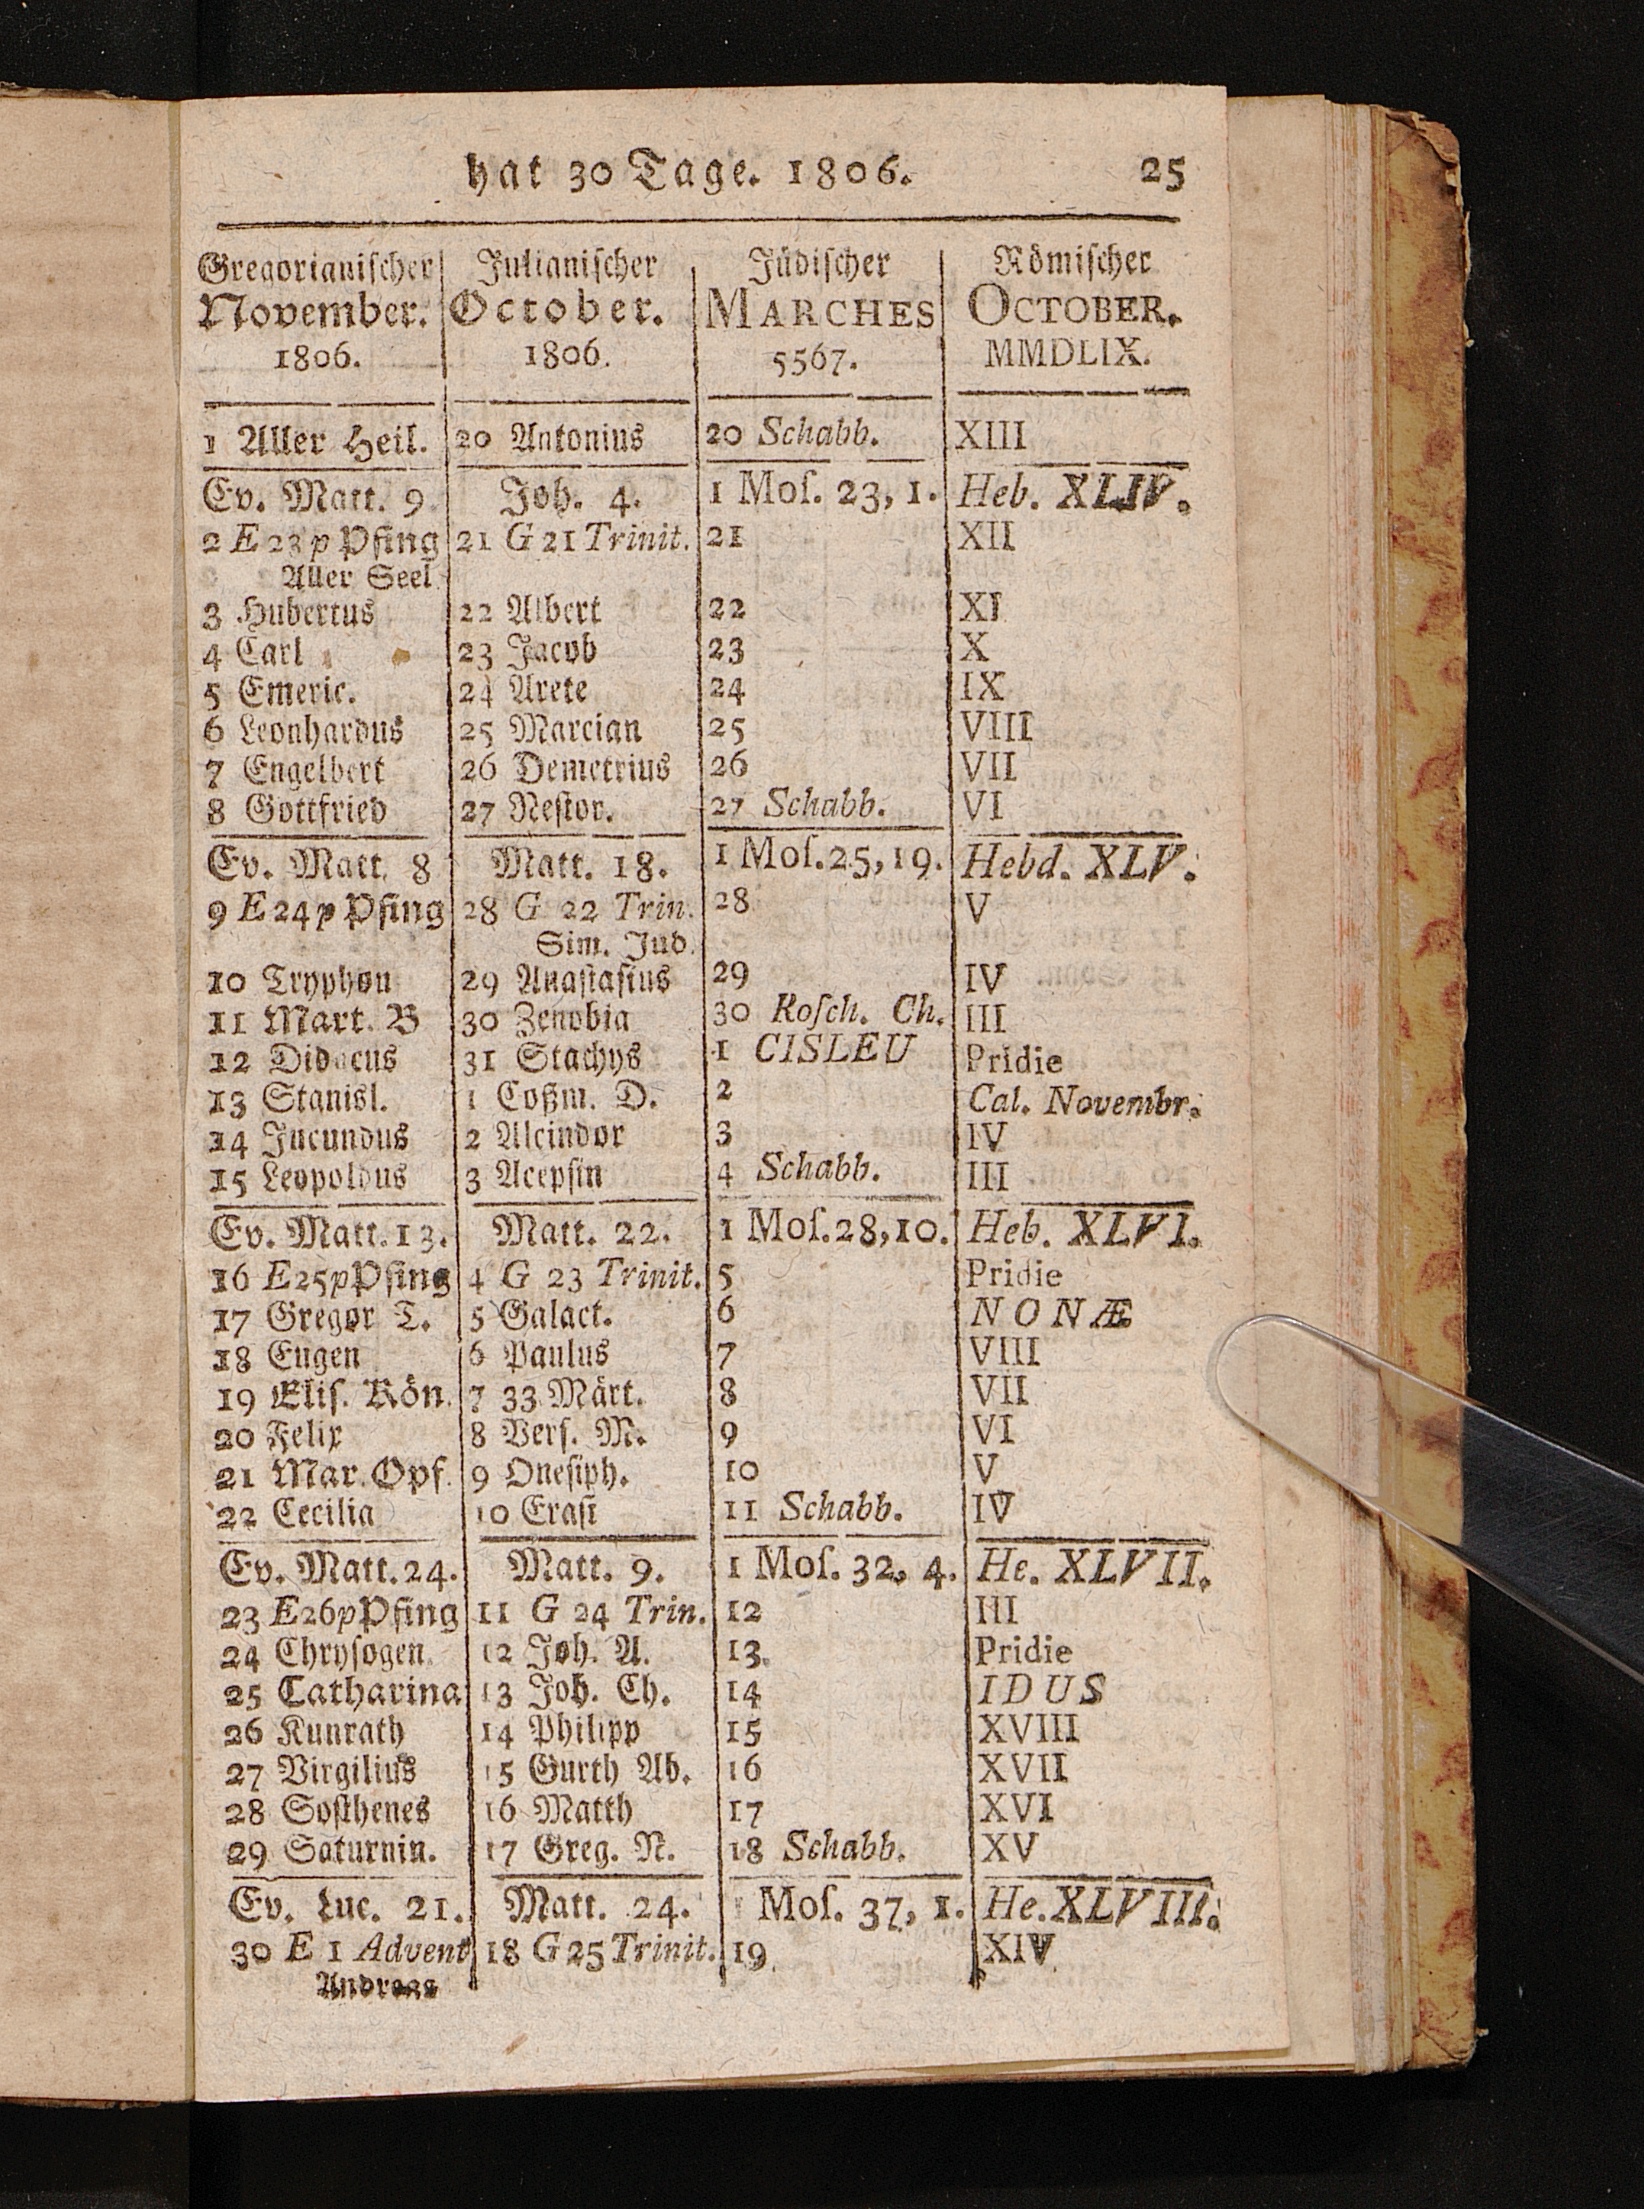 hat 30 Tage. 1806. 25
Gregorianiſcher Julianiſcher Jüdiſcher Römiſcher
November. October. MARCHES OCTOBER.
1806. 1806. 5567. MMDLIX.
1 Aller Heil. 20 Antonius 20 Schabb. XIII
Ev. Matt. 9. Joh. 4. 1 Moſ. 23, 1. Heb. XLIV.
2 E 23 p Pfing 21 G 21 Trinit. 21 XII
Aller Seel
3 Hubertus 22 Albert 22 XI
4 Carl 23 Jacob 23 X
5 Emeric. 24 Arete 24 IX
6 Leonhardus 25 Marcian 25 VIII
7 Engelbert 26 Demetrius 26 VII
8 Gottfried 27 Neſtor. 27 Schabb. VI
Ev. Matt. 8 Matt. 18. 1 Moſ. 25, 19. Hebd. XLV.
9 E 24 p Pfing 28 G 22 Trin. 28 V
Sim. Jud.
10 Tryphon 29 Anaſtaſius 29 IV
11 Mart. B 30 Zenobia 30 Roſch. Ch. III
12 Didacus 31 Stachys 1 CISLEU Pridie
13 Stanisl. 1 Coßm. D. 2 Cal. Novembr.
14 Jucundus 2 Alcindor 3 IV
15 Leopoldus 3 Acepſin 4 Schabb. III
Ev. Matt. 13. Matt. 22. 1 Moſ. 28, 10. Heb. XLVI.
16 E 25 p Pfing 4 G 23 Trinit. 5 Pridie
17 Gregor T. 5 Galact. 6 NONÆ
18 Eugen 6 Paulus 7 VIII
19 Eliſ. Kön. 7 33 Märt. 8 VII
20 Felix 8 Verſ. M. 9 VI
21 Mar. Opf. 9 Oneſiph. 10 V
22 Cecilia 10 Eraſt 11 Schabb. IV
Ev. Matt. 24. Matt. 9. 1 Moſ. 32, 4. He. XLVII.
23 E 26 p Pfing 11 G 24 Trin. 12 III
24 Chryſogen. 12 Joh. A. 13. Pridie
25 Catharina 13 Joh. Ch. 14 IDUS
26 Kunrath 14 Philipp 15 XVIII
27 Virgilius 15 Gurth Ab. 16 XVII
28 Soſthenes 16 Matth 17 XVI
29 Saturnin. 17 Greg. N. 18 Schabb. XV
Ev. Luc. 21. Matt. 24. 1 Moſ. 37, 1. He. XLVIII.
30 E 1 Advent 18 G 25 Trinit. 19 XIV
Andreas